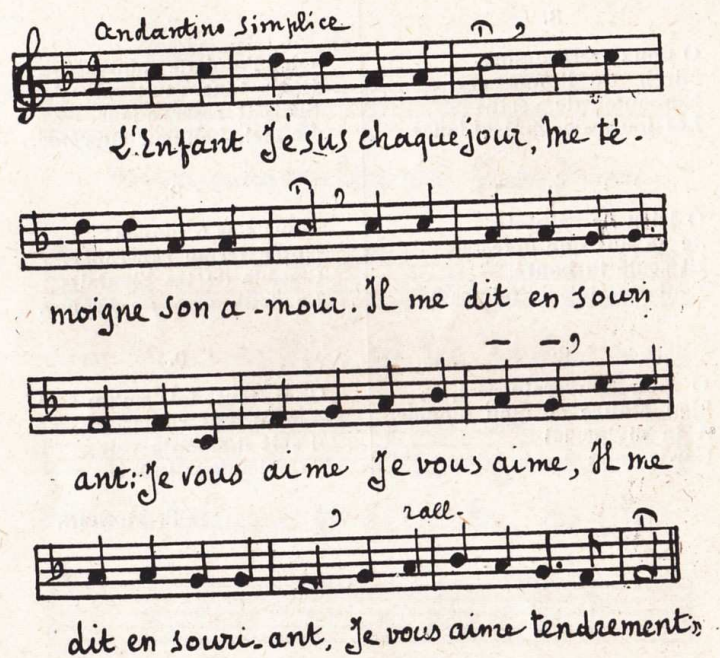 andantino simplice
2
L'Enfant Jésus chaque jour, me té-
moigne son a-mour. Il me dit en souri
ant: Je vous aime Je vous aime, Il me
rall.
dit en souri-ant, Je vous aime tendrement »